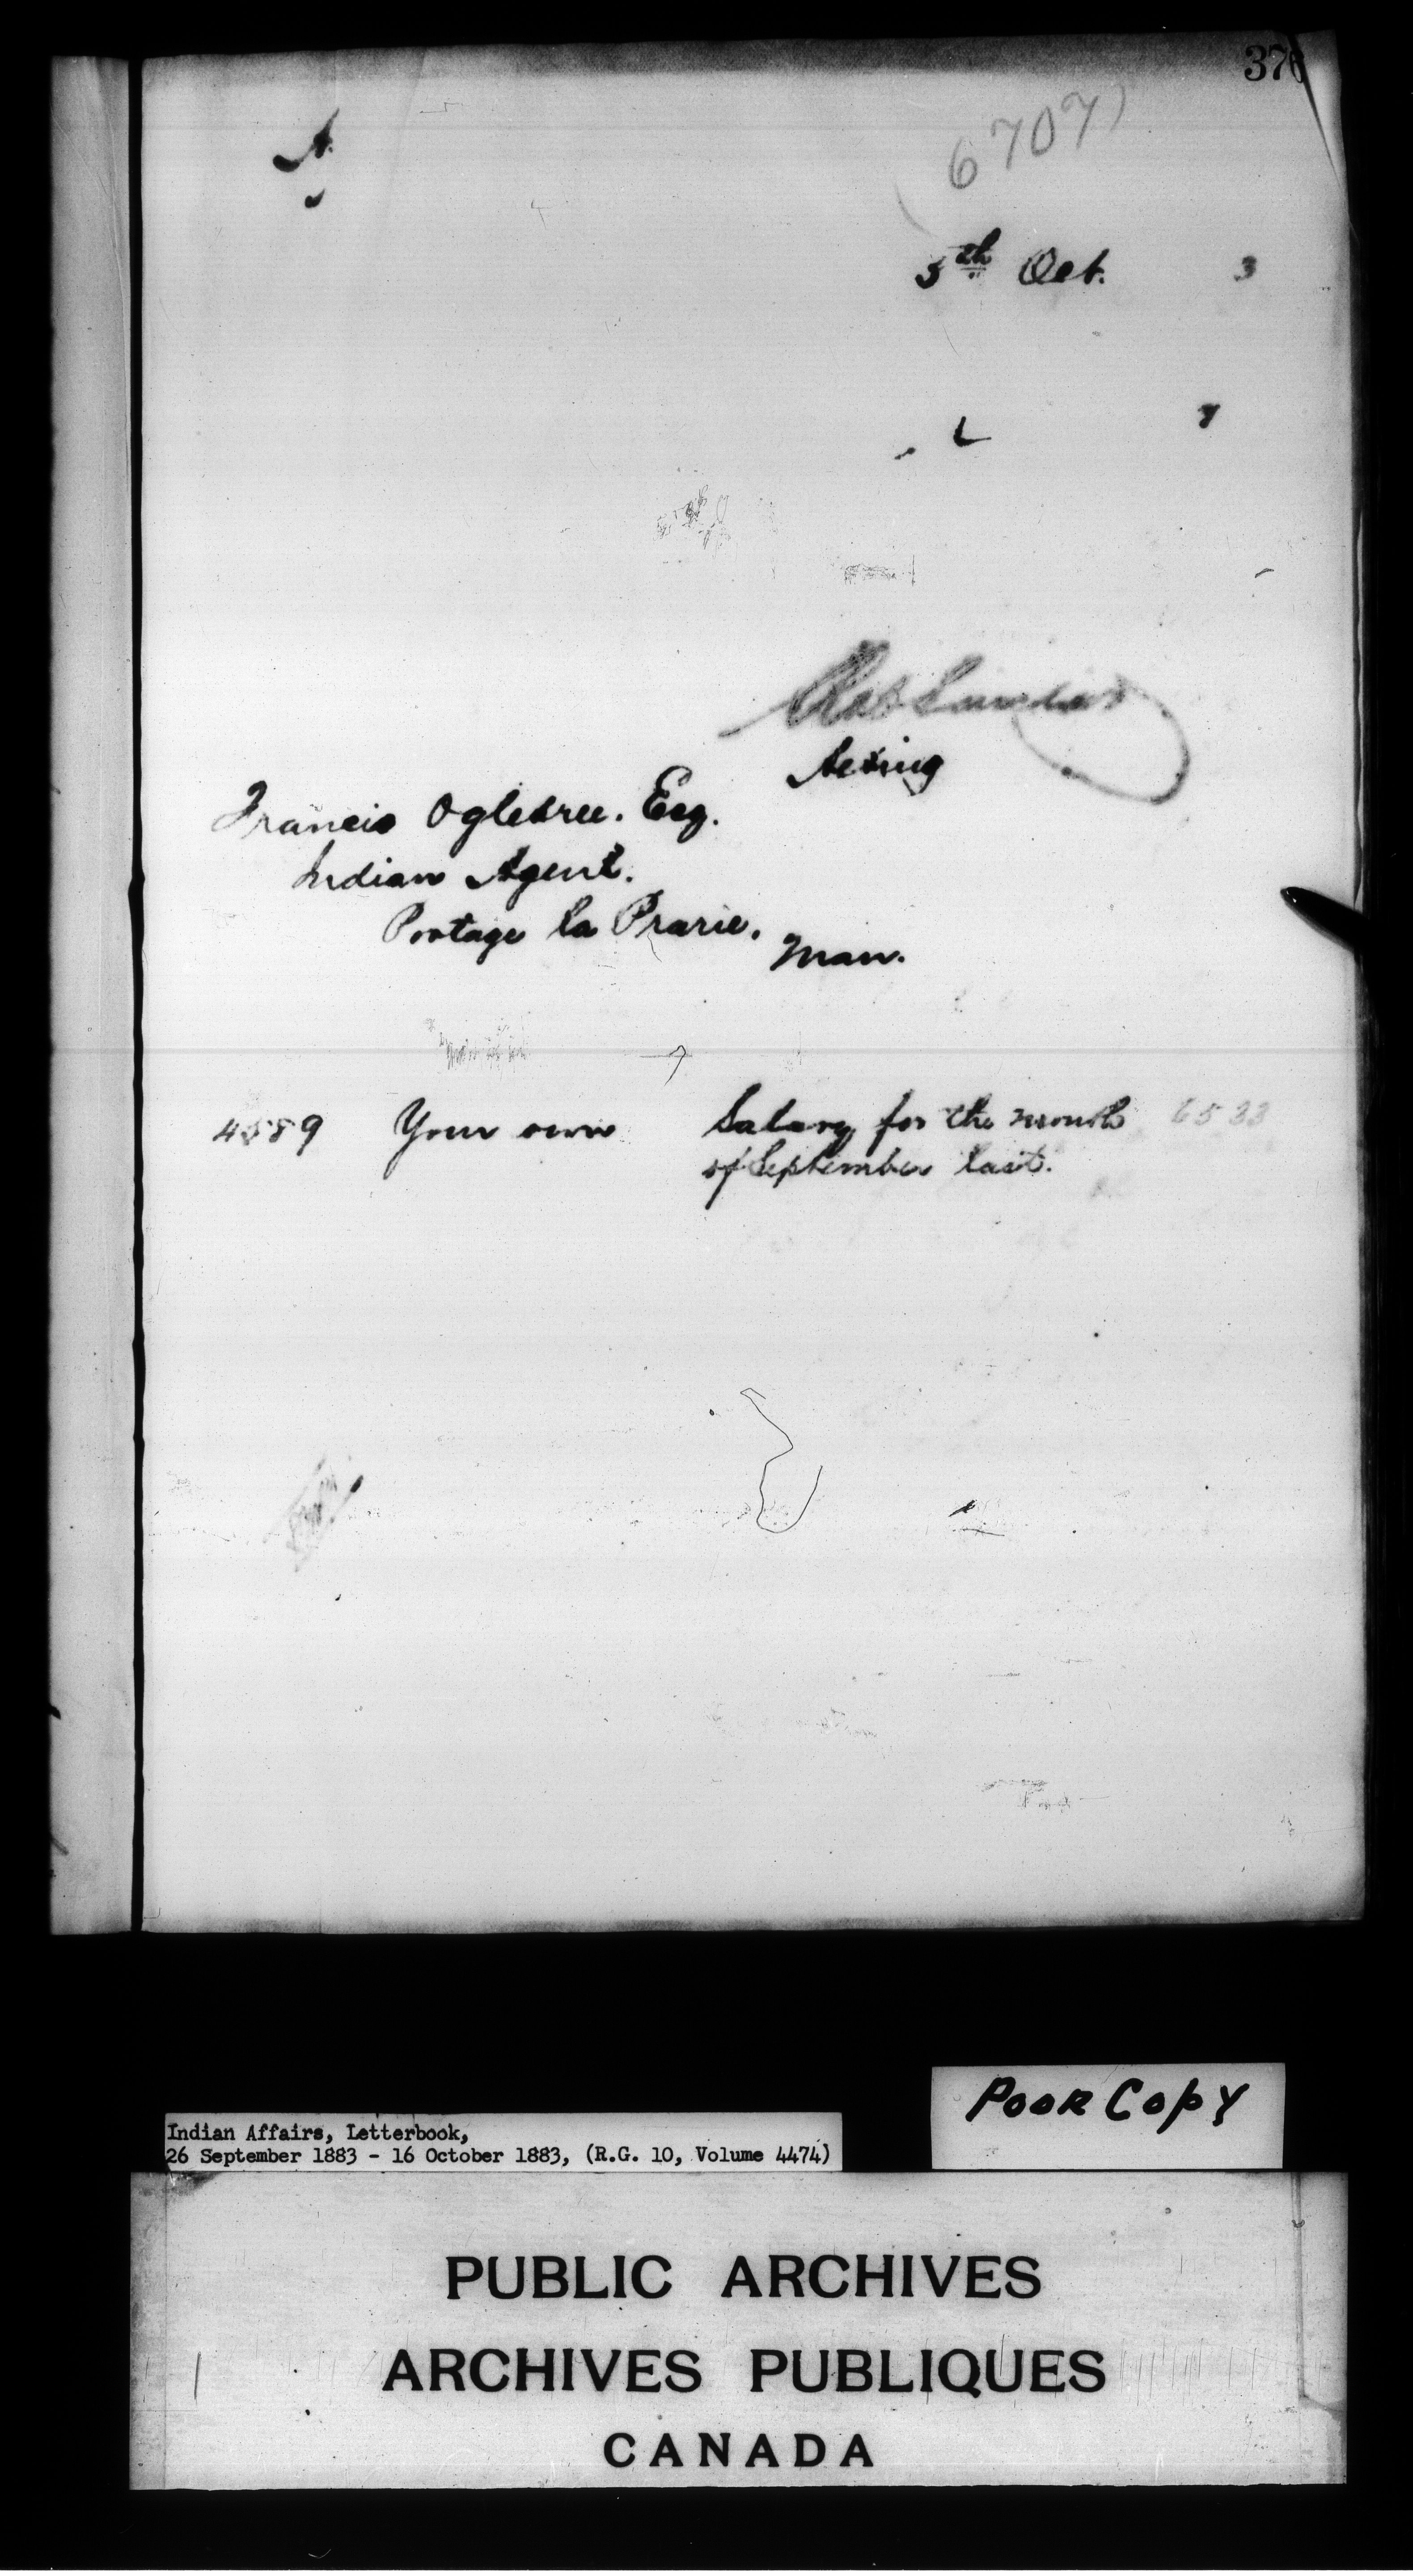 376
A.
6707)
5th Oct. 3
L
Acting
Francis Ogletree. Esq.
Indian Agent.
Portage la Prarie.
Man.
4589 Your own Salary for the month 6533
of September last.
Poor Copy
Indian Affairs, Letterbook,
26 September 1883 - 16 October 1883, (R.G. 10, Volume 4474)
PUBLIC ARCHIVES
ARCHIVES PUBLIQUES
CANADA